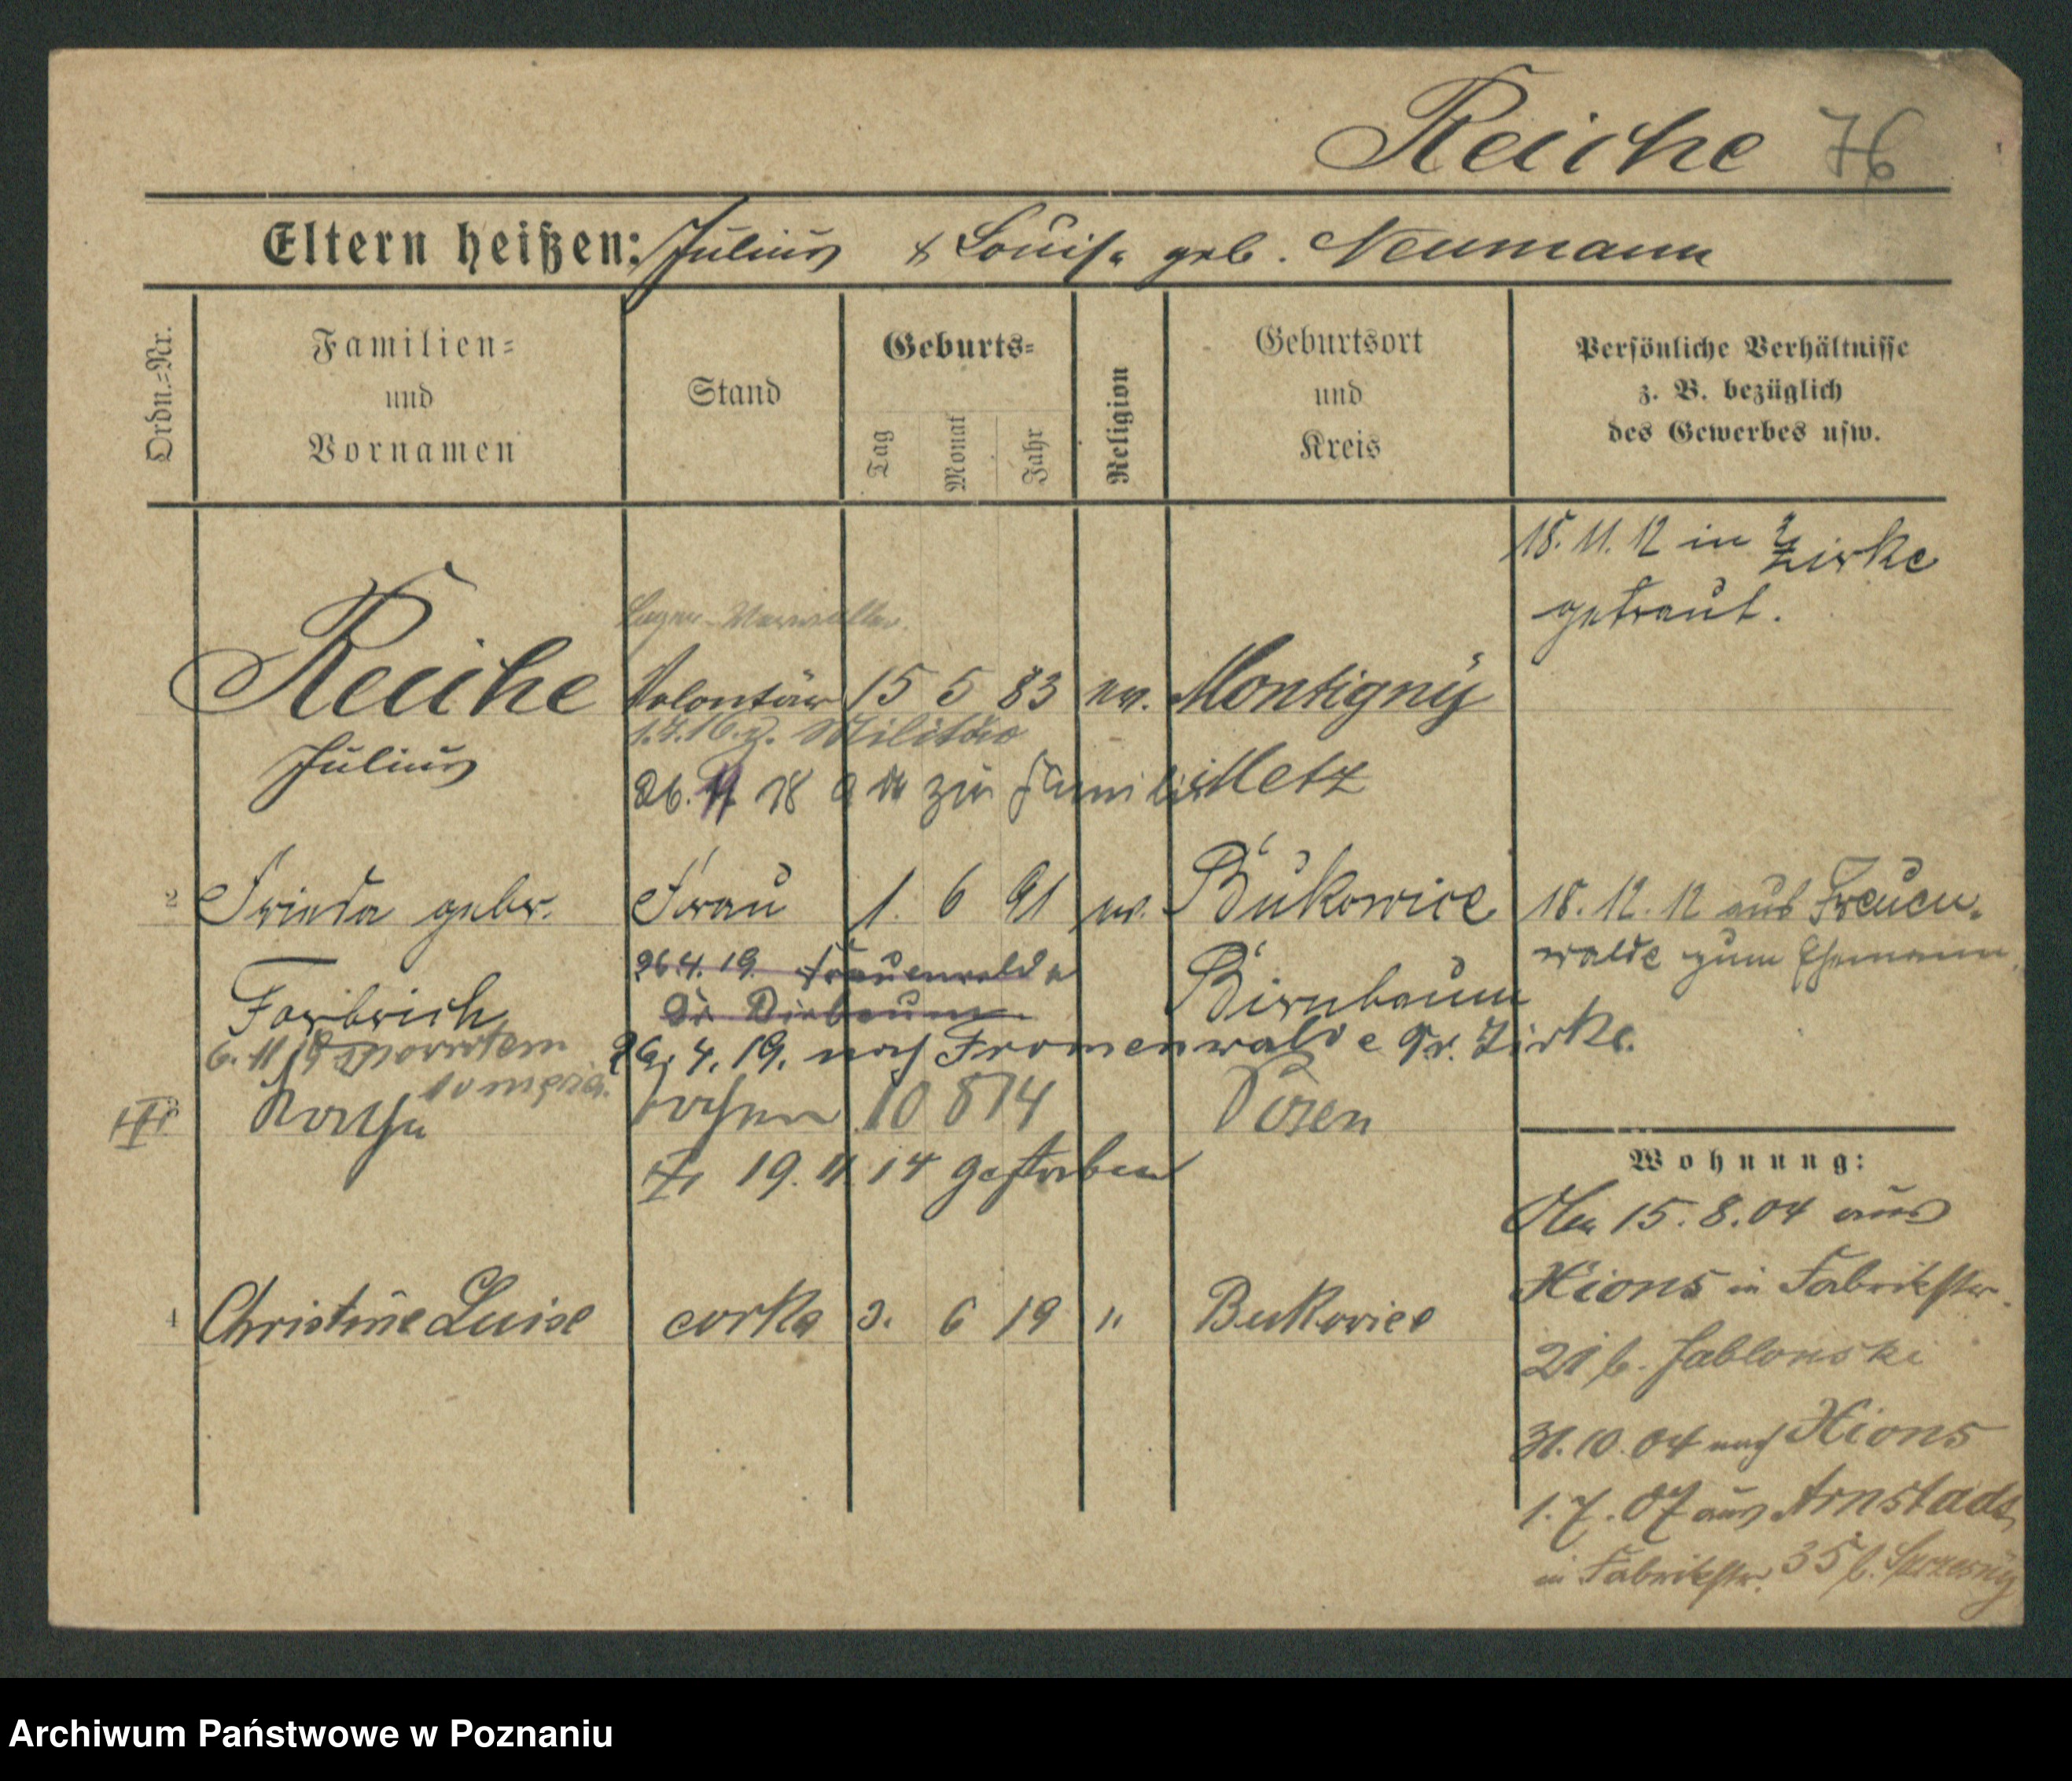 Reiche 76
Eltern heißen: Julius & Louise geb. Neumann
Ordn.-Nr.
Familien- und Vornamen
Stand
Geburts-
Tag Monat Jahr
Religion
Geburtsort und Kreis
Persönliche Verhältnisse
z. B. bezüglich
des Gewerbes usw.
18. 11. 12 in Zirke
getraut.
Lager-Verwalter
Reiche Volontär 15 5 83 ev. Montigny
1.4.16. z. Militär
Julius 26. 11 18 zur Familie Metz
2 Frieda gebr. Frau 1. 6 91 ev. Bukowice 18. 12. 12 aus Frauen-
walde zum Ehemann.
26.4.19. Frauenwalde Birnbaum
Forbrich
6. 11 19 z powrotem 26. 4. 19. nach Frauenwalde Kr. Zirke.
do męża.
Tochter 10 8 14 Posen
19. 11. 14 gestorben
Wohnung:
Am 15. 8. 04 aus
Xions in Fabrikstr.
21 b. Jablonski
31. 10. 04 nach Xions
1. 7. 07 aus Arnstadt
in Fabrikstr. 35 b.
4 Christine Luise córka 3. 6 19 " Bukowiec
Archiwum Państwowe w Poznaniu